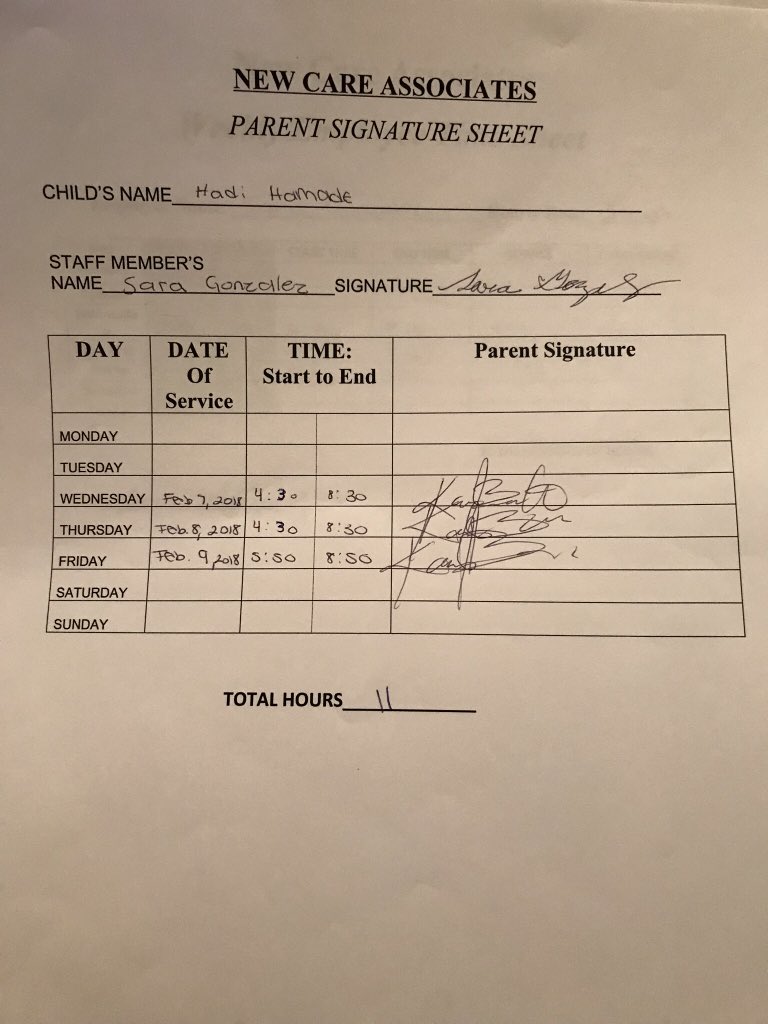 NEW CARE ASSOCIATES
PARENT SIGNATURE SHEET
CHILD'S NAME Hadi Hamade
STAFF MEMBER'S
NAME Sara Gonzalez SIGNATURE Sara
DAY DATE Of Service TIME: Start to End Parent Signature
MONDAY
TUESDAY
WEDNESDAY Feb 7, 2018 4:30 8:30
THURSDAY Feb. 8, 2018 4:30 8:30
FRIDAY Feb. 9, 2018 5:50 8:50
SATURDAY
SUNDAY
TOTAL HOURS 11